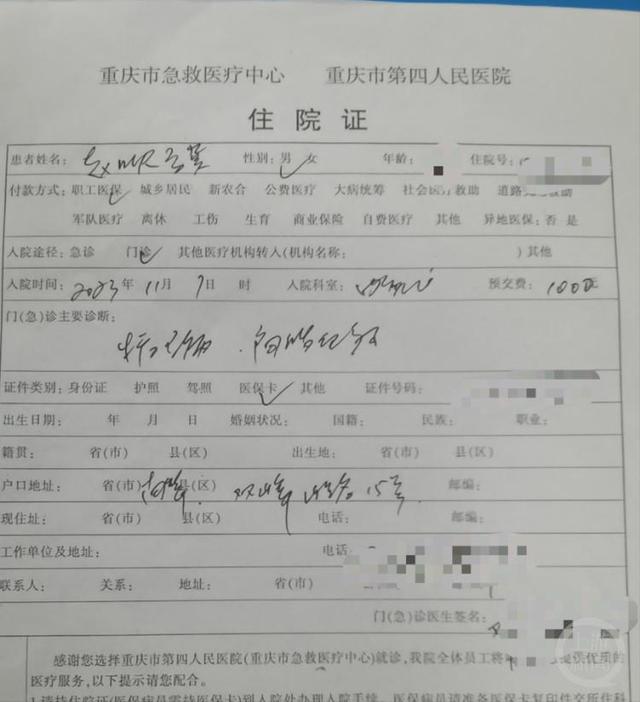 重庆市急救医疗中心 重庆市第四人民医院
住院证
患者姓名: 性别: 男 女 年龄: 住院号:
付款方式: 职工医保 城乡居民 新农合 公费医疗 大病统筹 社会医疗救助 道路 救助
军队医疗 离休 工伤 生育 商业保险 自费医疗 其他 异地医保: 否 是
入院途径: 急诊 门诊 其他医疗机构转入(机构名称: ) 其他
入院时间: 2023年 11月 9日 时 入院科室: 预交费: 1000元
门(急)诊主要诊断:
证件类别: 身份证 护照 驾照 医保卡 其他 证件号码:
出生日期: 年 月 日 婚姻状况: 国籍: 民族: 职业:
籍贯: 省(市) 县(区) 出生地: 省(市) 县(区)
户口地址: 省(市) 县(区) 15号 邮编:
现住址: 省(市) 县(区) 电话: 邮编:
工作单位及地址: 电话
联系人: 关系: 地址: 省(市)
门(急)诊医生签名:
感谢您选择重庆市第四人民医院(重庆市急救医疗中心)就诊,我院全体员工将 提供优质的
医疗服务,以下提示请您配合。
1.请持住院证(医保病员需持医保卡)到入院处办理入院手续。医保病员请准备医保卡复印件交所住科